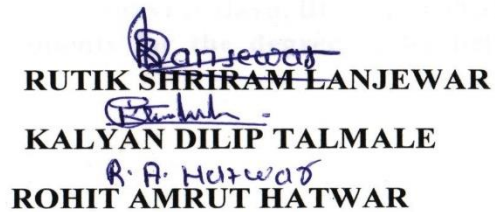 RUTIK SHRIRAM LANJEWAR
KALYAN DILIP TALMALE
R. A. Hatwar
ROHIT AMRUT HATWAR